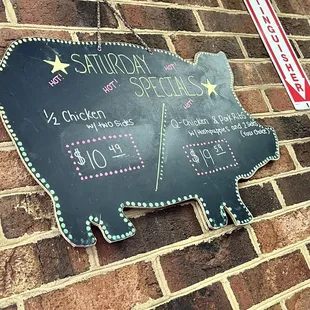 SATURDAY
SPECIALS
HOT!
HOT!
HOT!
HOT!
1/2 Chicken
w/ two Sides
$10.49
Q-Chicken & Pork Ribs
w/ Hushpuppies and 2 Sides
(your choice)
$19
TINGUISHER